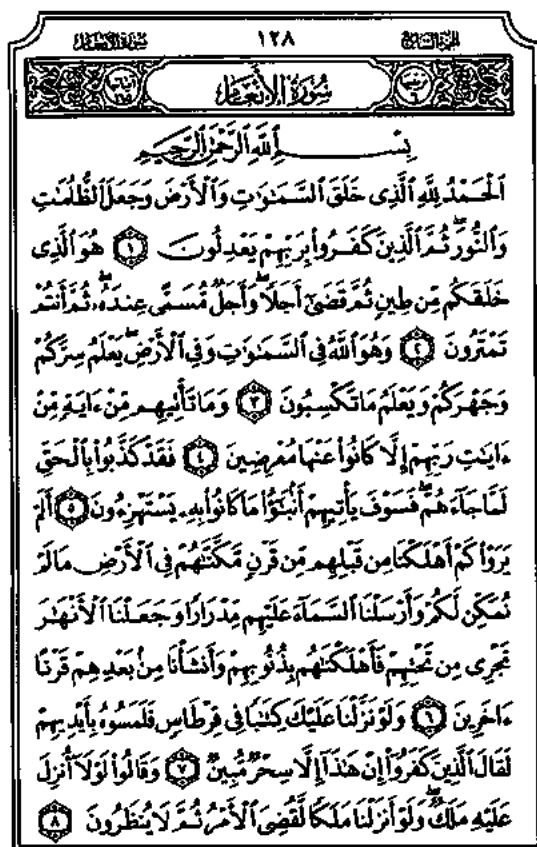 الجزء السابع ١٢٨ سورة الأنعام
سُورَةُ الْأَنْعَامِ
بِسْمِ ٱللَّهِ ٱلرَّحْمَٰنِ ٱلرَّحِيمِ
ٱلْحَمْدُ لِلَّهِ ٱلَّذِى خَلَقَ ٱلسَّمَٰوَٰتِ وَٱلْأَرْضَ وَجَعَلَ ٱلظُّلُمَٰتِ
وَٱلنُّورَ ۖ ثُمَّ ٱلَّذِينَ كَفَرُوا۟ بِرَبِّهِمْ يَعْدِلُونَ ١ هُوَ ٱلَّذِى
خَلَقَكُم مِّن طِينٍ ثُمَّ قَضَىٰٓ أَجَلًا ۖ وَأَجَلٌ مُّسَمًّى عِندَهُۥ ۖ ثُمَّ أَنتُمْ
تَمْتَرُونَ ٢ وَهُوَ ٱللَّهُ فِى ٱلسَّمَٰوَٰتِ وَفِى ٱلْأَرْضِ ۖ يَعْلَمُ سِرَّكُمْ
وَجَهْرَكُمْ وَيَعْلَمُ مَا تَكْسِبُونَ ٣ وَمَا تَأْتِيهِم مِّنْ ءَايَةٍ مِّنْ
ءَايَٰتِ رَبِّهِمْ إِلَّا كَانُوا۟ عَنْهَا مُعْرِضِينَ ٤ فَقَدْ كَذَّبُوا۟ بِٱلْحَقِّ
لَمَّا جَآءَهُمْ ۖ فَسَوْفَ يَأْتِيهِمْ أَنۢبَٰٓؤُا۟ مَا كَانُوا۟ بِهِۦ يَسْتَهْزِءُونَ ٥ أَلَمْ
يَرَوْا۟ كَمْ أَهْلَكْنَا مِن قَبْلِهِم مِّن قَرْنٍ مَّكَّنَّٰهُمْ فِى ٱلْأَرْضِ مَا لَمْ
نُمَكِّن لَّكُمْ وَأَرْسَلْنَا ٱلسَّمَآءَ عَلَيْهِم مِّدْرَارًا وَجَعَلْنَا ٱلْأَنْهَٰرَ
تَجْرِى مِن تَحْتِهِمْ فَأَهْلَكْنَٰهُم بِذُنُوبِهِمْ وَأَنشَأْنَا مِنۢ بَعْدِهِمْ قَرْنًا
ءَاخَرِينَ ٦ وَلَوْ نَزَّلْنَا عَلَيْكَ كِتَٰبًا فِى قِرْطَاسٍ فَلَمَسُوهُ بِأَيْدِيهِمْ
لَقَالَ ٱلَّذِينَ كَفَرُوٓا۟ إِنْ هَٰذَآ إِلَّا سِحْرٌ مُّبِينٌ ٧ وَقَالُوا۟ لَوْلَآ أُنزِلَ
عَلَيْهِ مَلَكٌ ۖ وَلَوْ أَنزَلْنَا مَلَكًا لَّقُضِىَ ٱلْأَمْرُ ثُمَّ لَا يُنظَرُونَ ٨